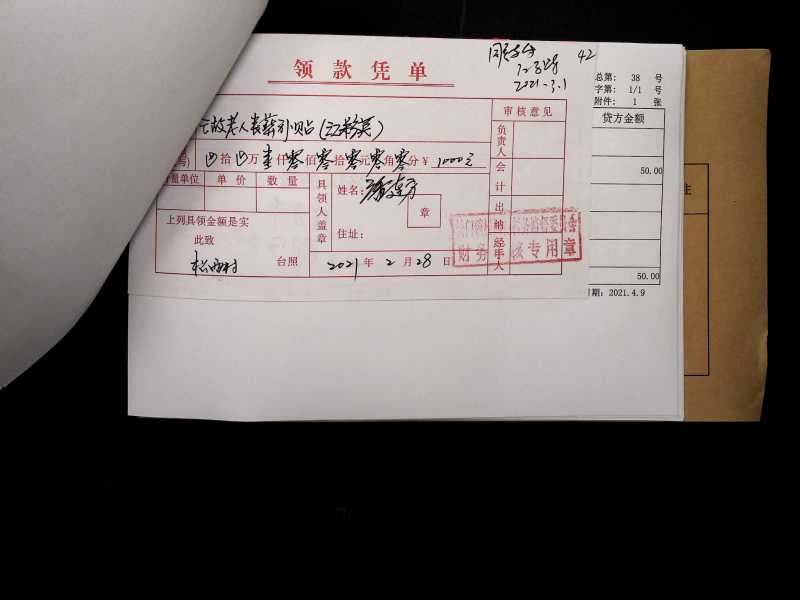 42
2021.3.1
领款凭单
总第: 38 号
字第: 1/1 号
附件: 1 张
贷方金额
50.00
50.00
期: 2021.4.9
审核意见
负责人
会计
出纳
经手人
亡故老人丧葬补贴(江彩英)
拾 万 壹仟零佰零拾零元零角零分¥ 1000元
量单位 单价 数量
具领人盖章
姓名:
章
住址:
上列具领金额是实
此致
松西村 台照
2021年2月28日
财务 专用章